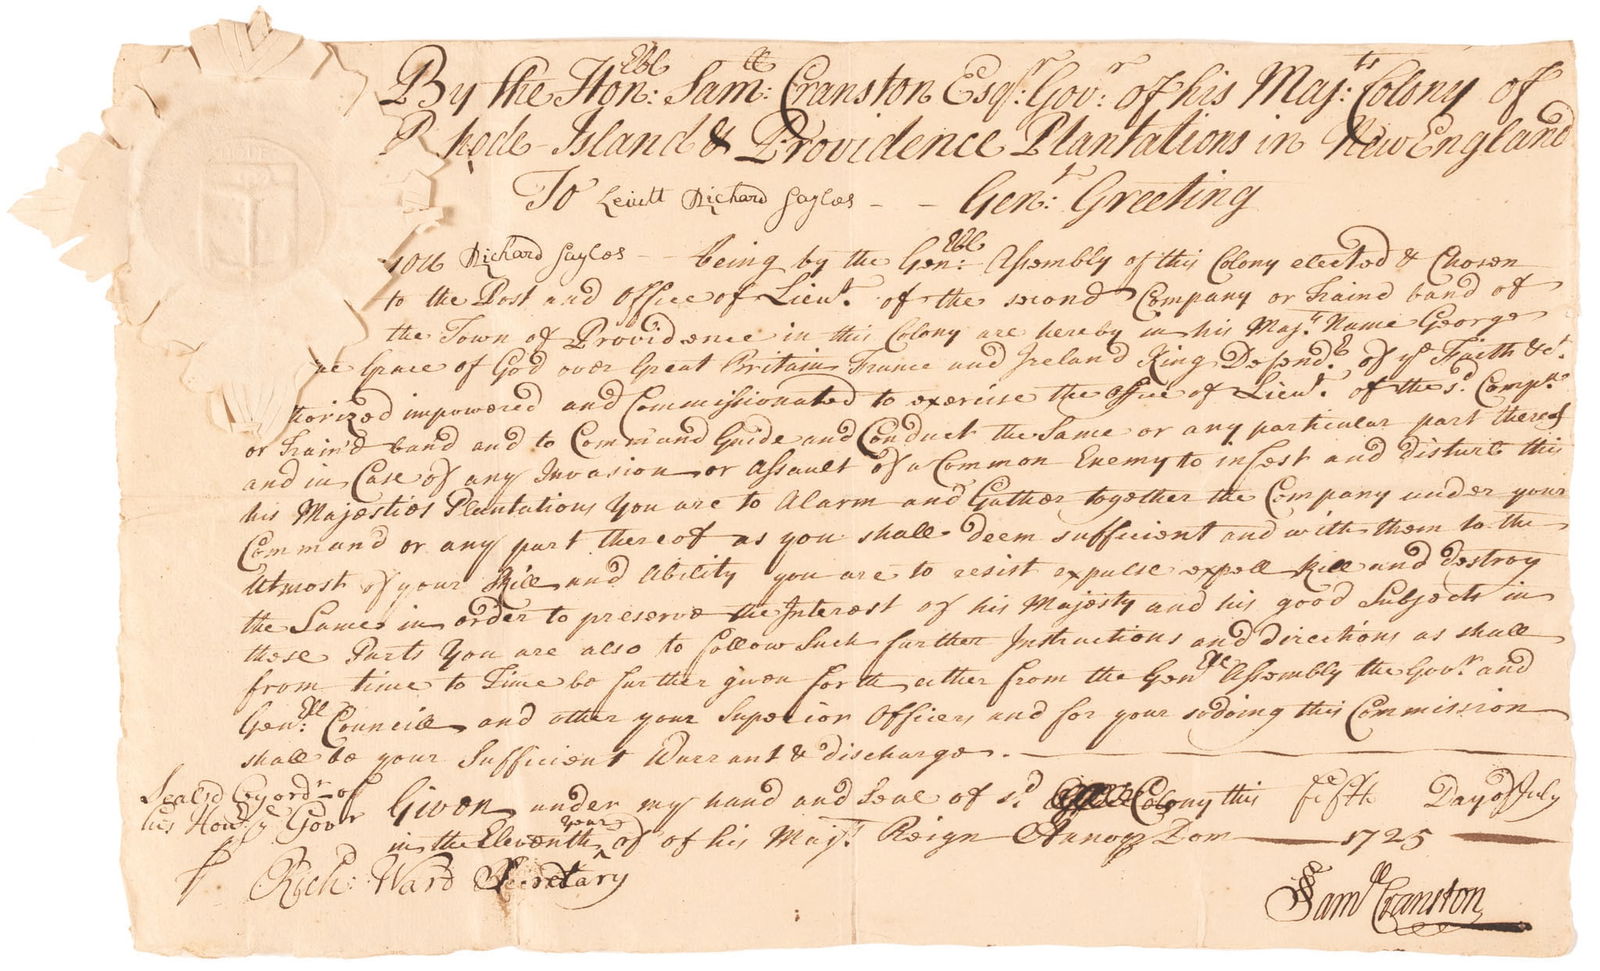 By the Hon:ble Sam:ll Cranston Esqr: Govr: of his Maj:ts Colony of
Rhode-Island & Providence Plantations in New England
To Leiutt Richard Sayles - - Gen:t Greeting
You Richard Sayles - - being by the Gen:bl Assembly of this Colony elected & Chosen
to the Post and Office of Lieut. of the second Company or Traind band of
the Town of Providence in this Colony are hereby in his Maj:ts Name George
he Grace of God over Great Britain France and Ireland King Defendr. of ye Faith &ct.
thorized impowered and Commissionated to exercise the Office of Lieut. of the sd. Compne
or Train'd band and to Command Guide and Conduct the Same or any particular part thereof
and in Case of any Invasion or Assault of a Common Enemy to infest and disturb this
his Majesties Plantations You are to Alarm and Gather together the Company under your
Command or any part thereof as you shall deem sufficient and with them to the
Utmost of your Skill and Ability you are to resist expulse expell kill and destroy
the Same in order to preserve the Interest of his Majesty and his good Subjects in
these Parts You are also to follow Such further Instructions and directions as shall
from time to Time be further given forth either from the Genll Assembly the Govr. and
Gen:ll Councill and other your Superior Officers and for your so doing this Commission
shall be your Sufficient Warrant & discharge.
Seal'd by ordr of Given under my hand and Seal of sd. Colony this fifth Day of July
his Honr ye Govr in the Eleventh year of of his Maj:ts Reign Annoq Dom 1725
Rich: Ward Secretary
Samll Cranston